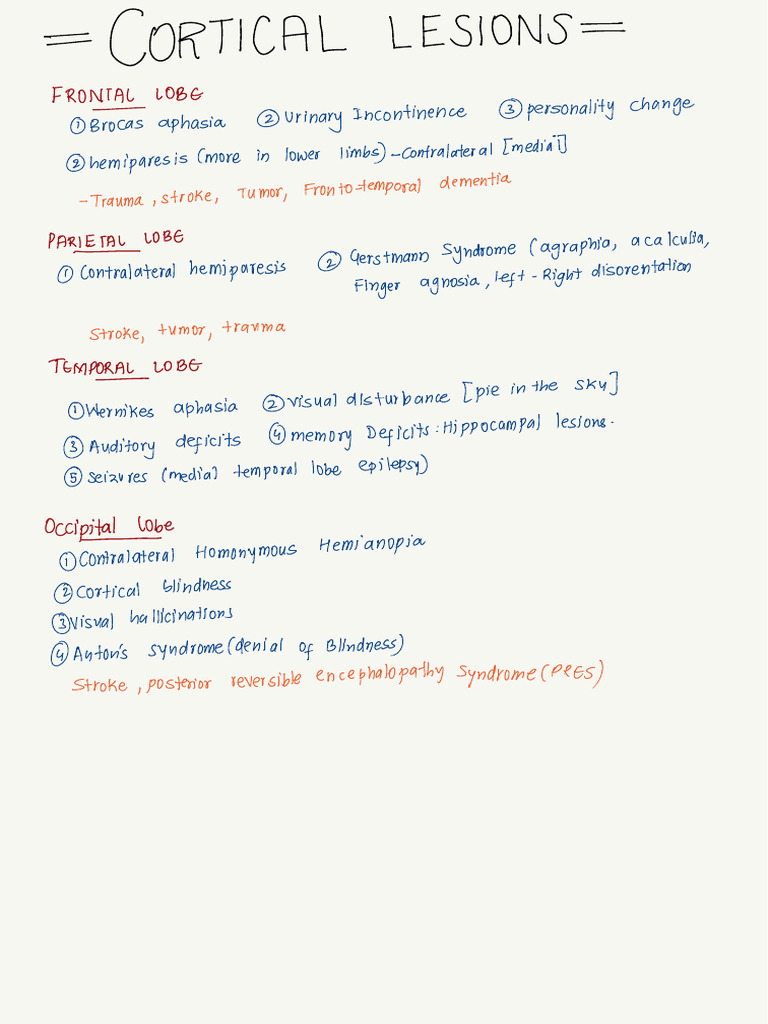 = CORTICAL LESIONS =
FRONTAL LOBE
① Brocas aphasia ② Urinary Incontinence ③ personality change
② hemiparesis (more in lower limbs) – Contralateral [medial]
- Trauma, stroke, Tumor, Fronto-temporal dementia
PARIETAL LOBE
① Contralateral hemiparesis ② Gerstmann Syndrome (agraphia, acalculia,
Finger agnosia, left - Right disorentation
Stroke, tumor, trauma
TEMPORAL LOBE
① Wernikes aphasia ② visual disturbance [pie in the sky]
③ Auditory deficits ④ memory Deficits : Hippocampal lesions.
⑤ seizures (medial temporal lobe epilepsy)
Occipital lobe
① Contralateral Homonymous Hemianopia
② Cortical blindness
③ Visual hallicinations
④ Anton's syndrome (denial of Blindness)
Stroke, posterior reversible encephalopathy Syndrome (PRES)